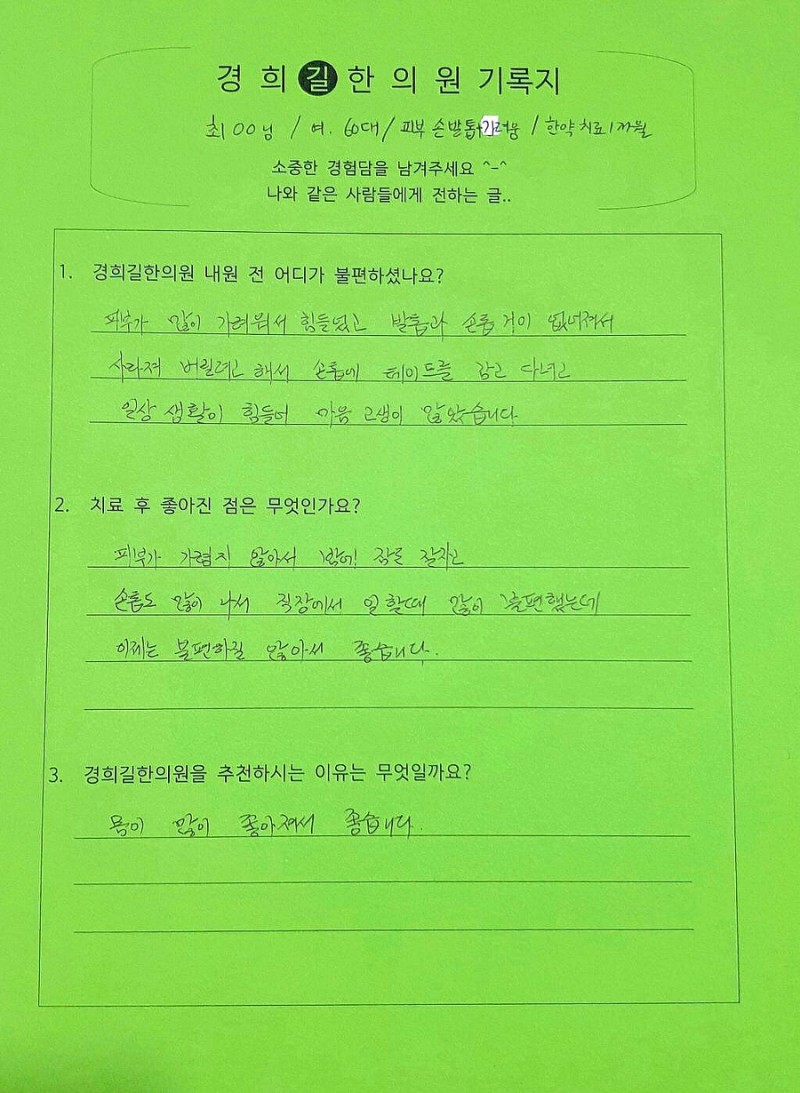 경희길한의원 기록지
최OO님 / 여. 60대 / 피부 손발톱+가려움 / 한약치료 1개월
소중한 경험담을 남겨주세요 ^-^
나와 같은 사람들에게 전하는 글..
1. 경희길한의원 내원 전 어디가 불편하셨나요?
피부가 많이 가려워서 힘들었고 발톱과 손톱 거이 없어져서
사라져 버릴려고 해서 손톱에 테이프를 감고 다녀고
일상 생활이 힘들어 마음 고생이 많았습니다
2. 치료 후 좋아진 점은 무엇인가요?
피부가 가렵지 않아서 밤에 잠을 잘자고
손톱도 많이 나서 직장에서 일 할때 많이 불편했는데
이제는 불편하질 않아서 좋습니다.
3. 경희길한의원을 추천하시는 이유는 무엇일까요?
몸이 많이 좋아져서 좋습니다.